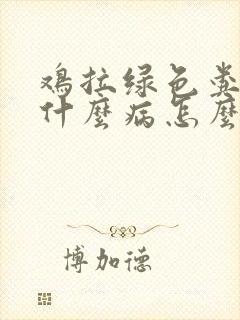 鸡拉绿色粪
什麼病怎麼
博加德